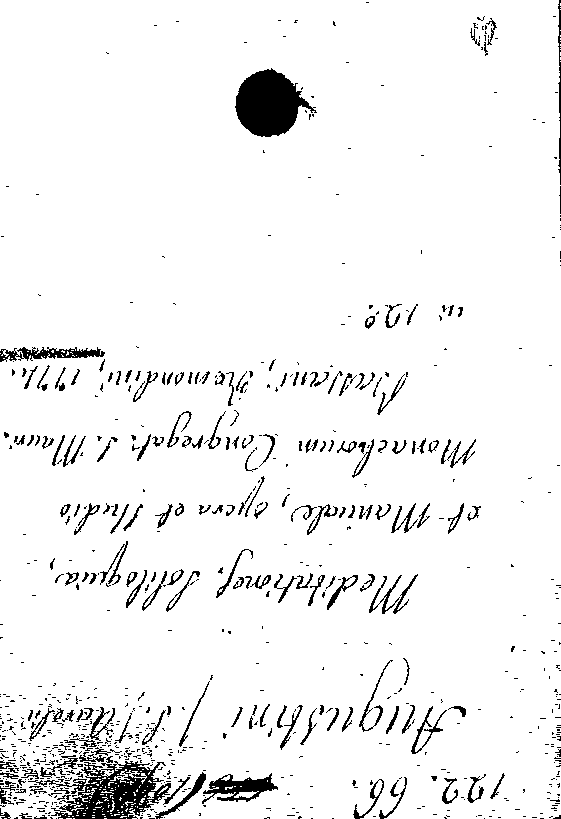 122. 66.
Augustini / S. /
Meditationes, Soliloquia,
et Manuale, opera et studio
Monachorum Congregat. S. Maur.
Bassani, Remondini, 1771.
in 12º